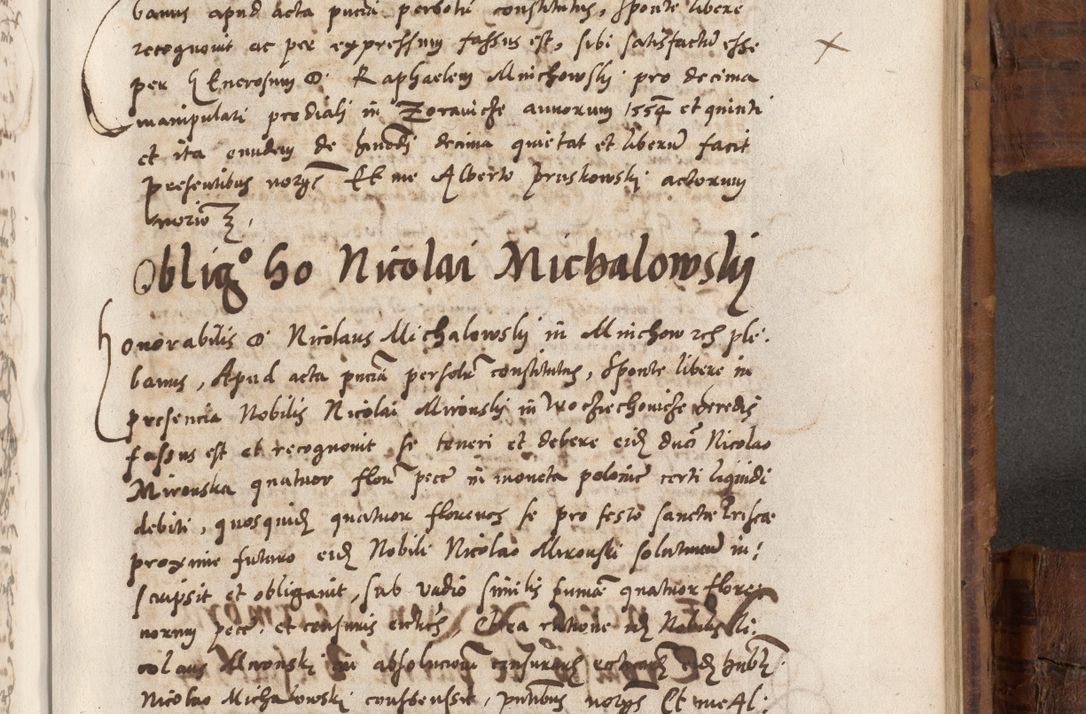 banus apud acta pñtia persolr constitutus, Sponte libere
recognovit ac per expressum fassus est, sibi satisfactũ esse
per Generosum D. Raphaelem Minchowsky pro decima
manipulari prediali in Zoraviche annorum 1554 et quinti
et ita eundem de hmõdi decima quietat et liberũ facit
presentibus Et me Alberto Pruskowski actorum
norio
Obligº ho Nicolai Michalowsky
Honorabilis D. Nicolaus Michalowsky in Minchow ple:
banus, Apud acta constitutus, Sponte libere in
presencia Nobilis Nicolai Mironsky in Wochiechoviche heredis
fassus est et recognovit se teneri et debere eidẽ dno Nicolao
Mironska quatuor flor pece in moneta polonie certi liquidi
debiti, quosquidẽ quatuor florenos se pro festo sancte crucis
proxime futuro eidẽ Nobili Nicolao Mironski soluturum in:
scripsit et obligavit, sub vadio similis quatuor flore:
norum pece, et censuris Et ea ratione Nobilis Ni:
colaus Mironsky in absolucionẽ
Nicolao Michalowski consensit, Et me Al: